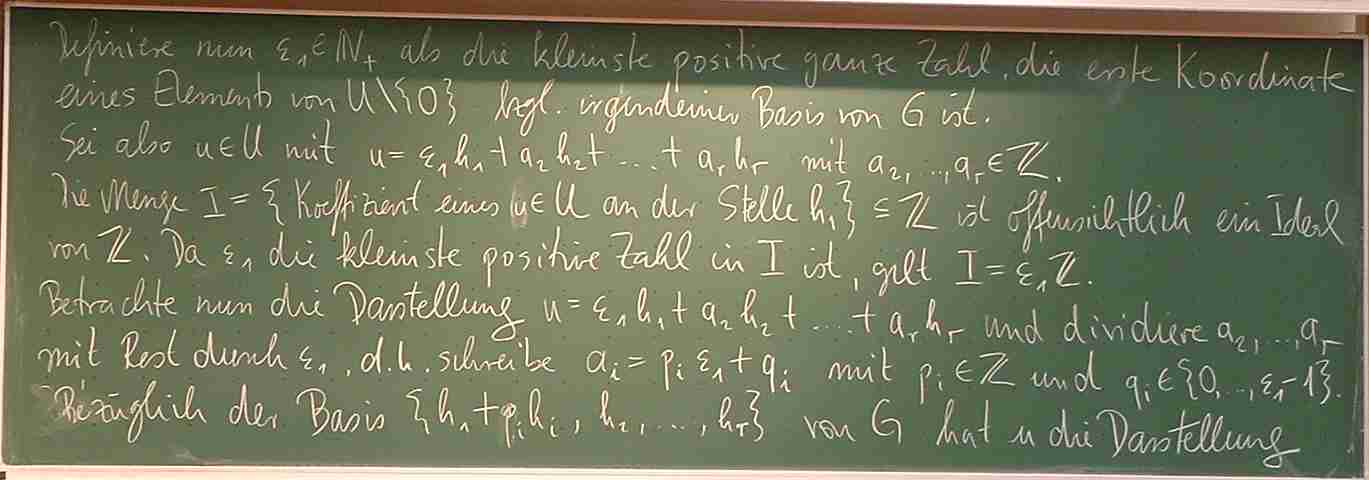 Definiere nun ε₁ ∈ ℕ₊ als die kleinste positive ganze Zahl, die erste Koordinate
eines Elements von U\{0} bzgl. irgendeiner Basis von G ist.
Sei also u∈U mit u = ε₁h₁ + a₂h₂ + ... + aᵣhᵣ mit a₂, ..., aᵣ ∈ ℤ.
Die Menge I = { Koeffizient eines u∈U an der Stelle h₁} ⊆ ℤ ist offensichtlich ein Ideal
von ℤ. Da ε₁ die kleinste positive Zahl in I ist, gilt I = ε₁ℤ.
Betrachte nun die Darstellung u = ε₁h₁ + a₂h₂ + .... + aᵣhᵣ und dividiere a₂, ..., aᵣ
mit Rest durch ε₁, d.h. schreibe aᵢ = pᵢ ε₁ + qᵢ mit pᵢ ∈ ℤ und qᵢ ∈ {0, ..., ε₁-1}.
Bezüglich der Basis {h₁ + pᵢhᵢ, h₂, ..., hᵣ} von G hat u die Darstellung